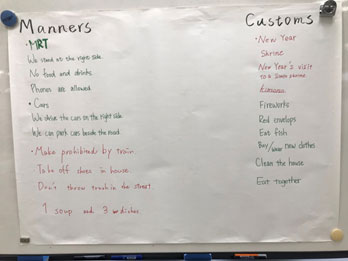 Manners
・MRT
We stand at the right side.
No food and drinks.
Phones are allowed
• Cars
We drive the cars on the right side.
We can park cars beside the road.
・Make prohibited by train.
Take off shoes in house.
Don't throw trash in the street.
1 soup and 3 dishes
Customs
・New Year
Shrine
New Year's visit
to a shrine
Fireworks
Red envelops
Eat fish
Buy/wear new clothes
Clean the house
Eat together